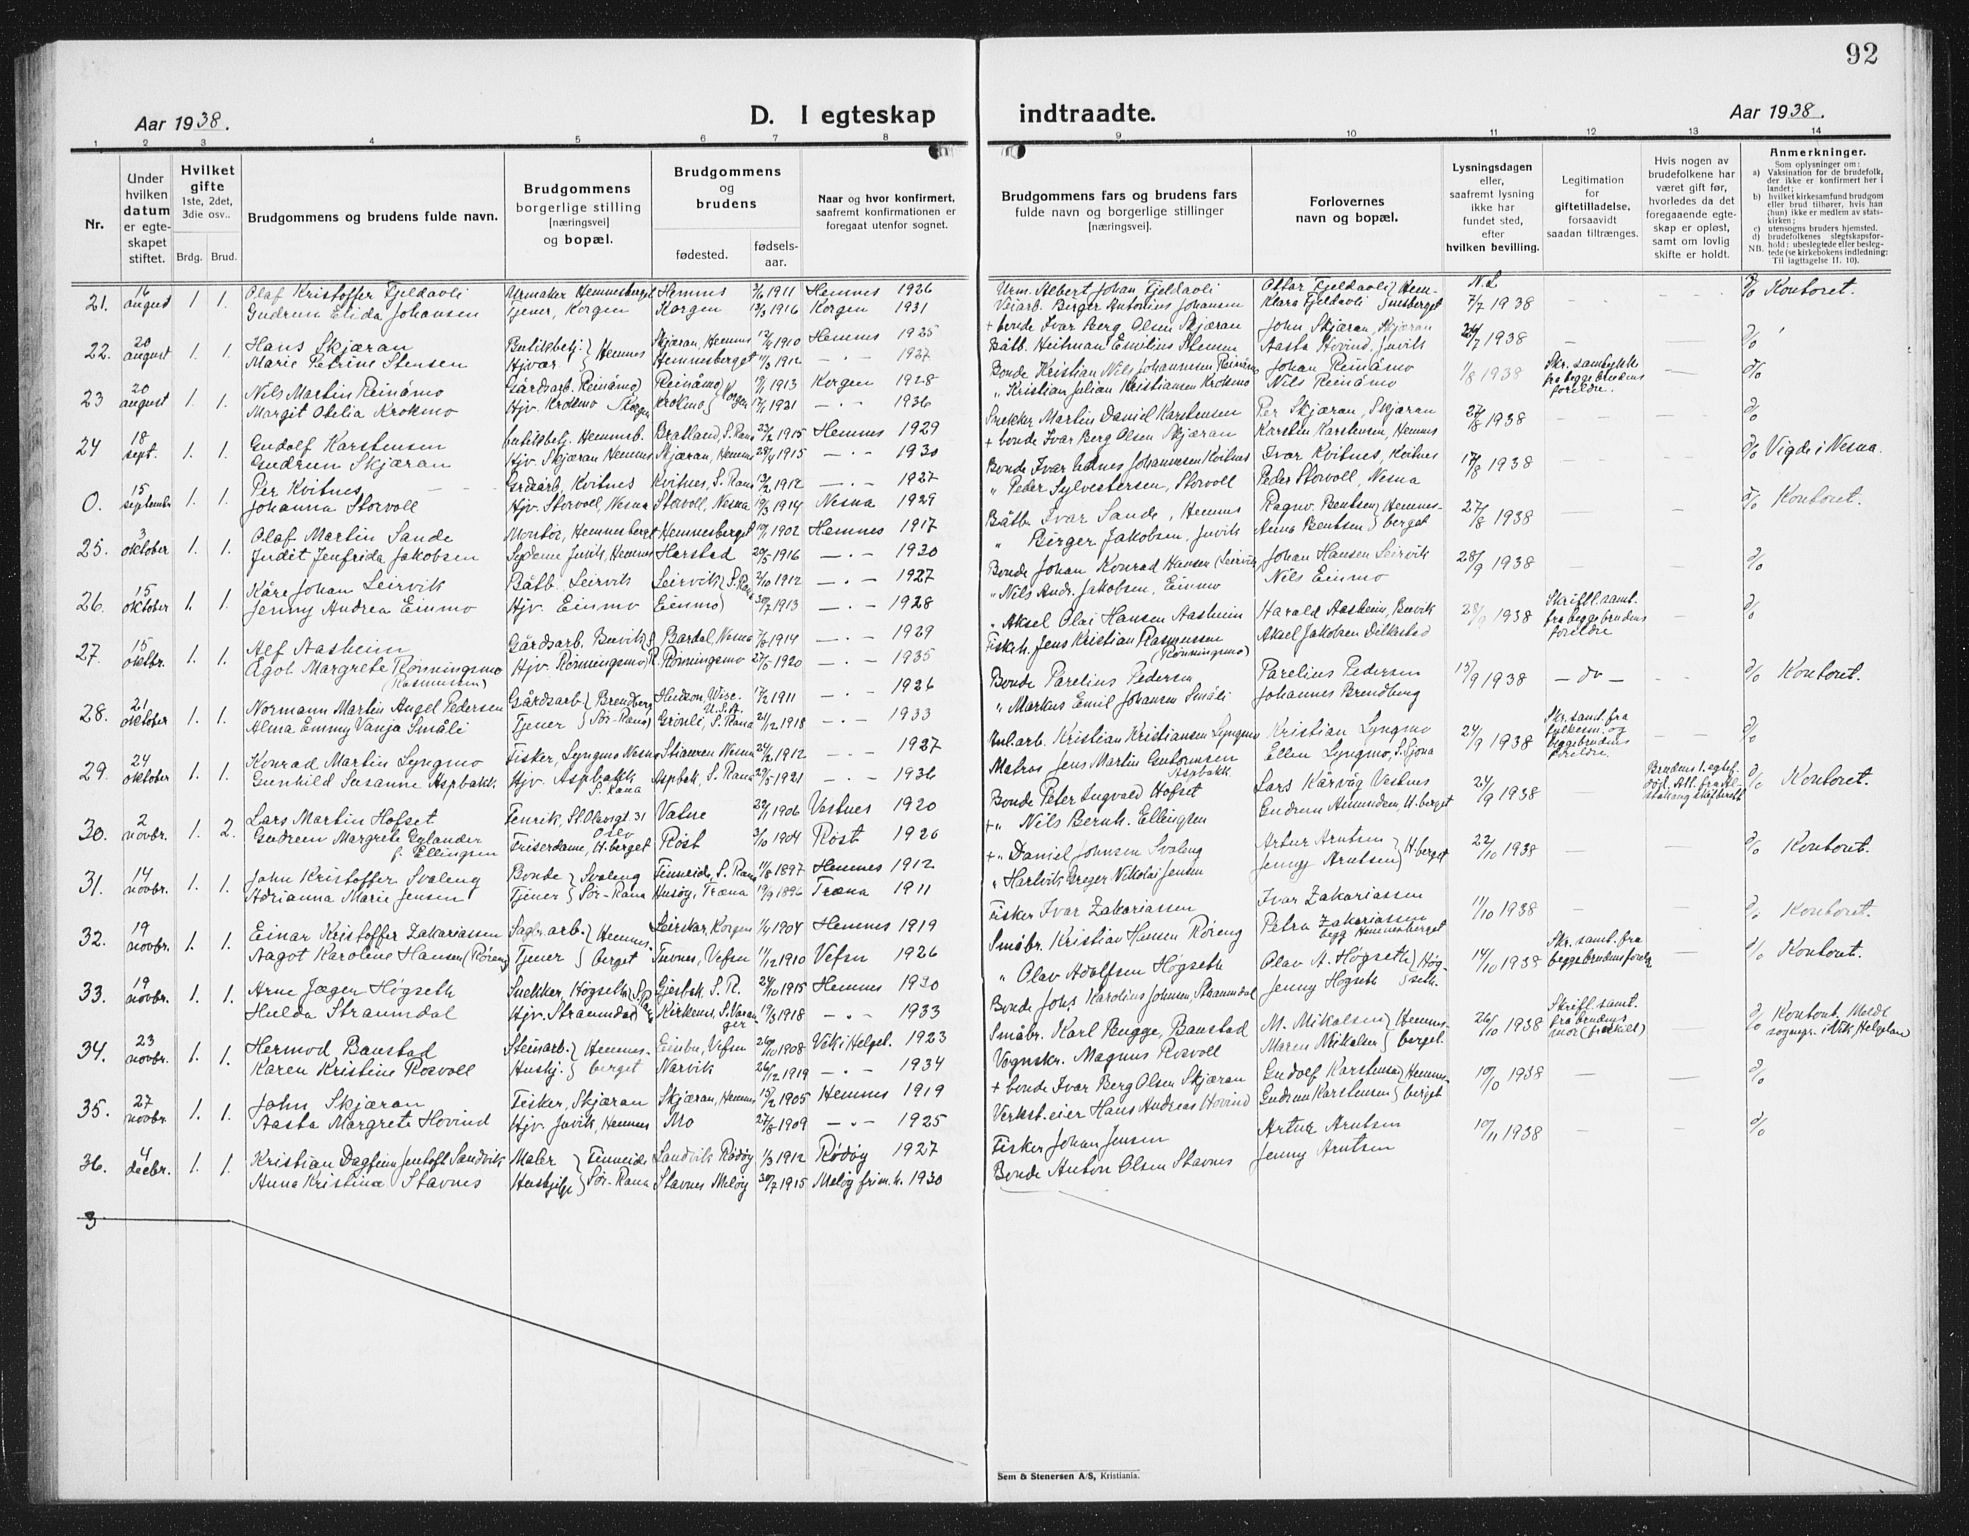 92
Aar 1938.
D. I egteskap
indtraadte.
Aar 1938.
1 2 3 4 5 6 7 8
9 10 11 12 13 14
Nr.
Under hvilken datum er egteskapet stiftet.
Hvilket gifte 1ste, 2det, 3die osv..
Brdg. Brud.
Brudgommens og brudens fulde navn.
Brudgommens borgerlige stilling [næringsvei] og bopæl.
Brudgommens og brudens
fødested.
fødsels-aar.
Naar og hvor konfirmert, saafremt konfirmationen er foregaat utenfor sognet.
Brudgommens fars og brudens fars fulde navn og borgerlige stillinger [næringsvei].
Forlovernes navn og bopæl.
Lysningsdagen eller, saafremt lysning ikke har fundet sted, efter hvilken bevilling.
Legitimation for giftetilladelse, forsaavidt saadan tiltrænges.
Hvis nogen av brudefolkene har været gift før, hvorledes da det foregaaende egteskap er opløst, samt om lovlig skifte er holdt.
Anmerkninger.
Som oplysninger om:
a) Vaksination for de brudefolk, der ikke er konfirmert her i landet;
b) hvilket kirkesamfund brudgom eller brud tilhører, hvis han (hun) ikke er medlem av statskirken;
c) utensogns bruders hjemsted.
d) brudefolkenes slegtskapsforhold: ubeslegtede eller beslegtede (se kirkebokens indledning:
NB. Til iagttagelse II. 10).
21. 16 august 1. 1.
Olaf Kristoffer Fjeldavli Urmaker Hemnesberget Hemnes 3/6 1911 Hemnes 1926
Gudrun Elida Johansen Tjener, Korgen Korgen 1916 Korgen 1931
Urm. Albert Johan Fjeldavli Ottar Fjeldavli } Hem-
Veiarb. Birger Antonius Johansen Klara Fjeldavli } nesberget 7/7 1938 Kontoret.
22. 20 august 1. 1.
Hans Skjæran Butikbetj. } Hemnes Skjæran, Hemnes 1910 Hemnes 1925
Marie Petrine Stensen Hjvær } Hemnesberget 1912 — " — 1927
+ bonde Ivar Berg Olsen Skjæran John Skjæran, Skjæran
Båtb. Heilman Emilius Stensen Aasta Hovind, Juvik 1938
23 20 august 1. 1.
Nils Martin Reinåmo Gårdsarb. Reinåmo } Reinåmo } Korgen 1913 Korgen 1928
Margit Otelia Krokmo Hjv. Krokmo Korgen Krokmo 1921 — " — 1936
Bonde Kristian Nils Johannesen Reinåmo Johan Reinåmo 1/8 1938 Skr. samtykke fra begge brudens foreldre.
" Kristian Julian Kristiansen Krokmo Nils Reinåmo
24 18 sept. 1. 1.
Gudolf Karstensen butikbetj. Hemnesb. Bratland, S. Rana 23/2 1915 Hemnes 1929
Gudrun Skjæran Hjv. Skjæran Hemnes Skjæran, Hemnes 1915 — " — 1930
Snekker Martin Daniel Karstensen Per Skjæran, Skjæran 27/8 1938
+ bonde Ivar Berg Olsen Skjæran Karstein Karstensen, Hemnes
0. 15 september 1. 1.
Per Kvitnes Grdsarb. Kvitnes Kvitnes, S. Rana 1912 — " — 1927
Johanna Storvoll Hjv. Storvoll, Nesna Storvoll, Nesna 19/3 1914 Nesna 1929
Bonde Ivar Johannesen Kvitnes Ivar Kvitnes, Kvitnes 17/8 1938 Vigde i Nesna.
" Peder Sylvestersen, Storvoll Peder Storvoll, Nesna
25. 3 oktober 1. 1.
Olaf Martin Sande Montør, Hemnesberget Hemnesberget 1902 Hemnes 1917
Judit Jenfrida Jakobsen Sydame Juvik, Hemnes Harstad 20/5 1916 — " — 1930
Båtb. Ivar Sande, Hemnes Ragnv. Bentsen } Hemnes-
" Birger Jakobsen, Juvik Anna Bentsen } berget 27/8 1938 Kontoret.
26. 15 oktober 1. 1.
Kåre Johan Leirvik Båtb. Leirvik Leirvik } S. Rana 2/10 1912 — " — 1927
Jenny Andrea Einmo Hjv. Einmo Einmo } 30/7 1913 — " — 1928
Bonde Johan Konrad Hansen Leirvik Johan Hansen Leirvik 28/9 1938
" Nils Andr. Jakobsen, Einmo Nils Einmo
27. 15 oktbr. 1. 1.
Alf Aasheim Gårdsarb. Bervik Bardal, Nesna 1914 — " — 1929
Egot Margrete Rönningsmo (Rasmussen) Hjv. Rönningsmo Rönningsmo 1920 — " — 1935
" Aksel Olai Hansen Aasheim Harald Aasheim, Bervik 28/9 1938 Skriftl. samt. fra begge brudens foreldre
Fiskeh. Jens Kristian Rasmussen (Rönningsmo) Aksel Jakobsen Dilkestad
28. 21 oktober 1. 1.
Normann Martin Angel Pedersen Gårdsarb. } Brendberg Hudson Wise. U.S.A. 17/2 1911 — " — 1926
Alma Emmy Vanja Småli Tjener } Sør-Rana Grönli, S. Rana 21/12 1918 — " — 1933
Bonde Parelius Pedersen Parelius Pedersen 15/9 1938 — do — Kontoret.
" Markus Emil Johansen Småli Johannes Brendberg
29. 24 oktober 1. 1.
Konrad Martin Lyngmo Fisker, Lyngmo Nesna Skianeren Nesna 24/2 1912 — " — 1927
Gunhild Susanne Aspbakk. Hjv. Aspbakk S. Rana Aspbak, S. Rana 29/5 1921 — " — 1936
Anl.arb. Kristian Kristiansen Lyngmo Kristian Lyngmo 24/9 1938 Skr. samt. fra fylkesm. og begge brudens foreldre.
Matros Jens Martin Guttormsen Aspbakk Ellen Lyngmo, S. Sjona
30. 2 novbr. 1. 2.
Lars Martin Hofset Fenrik, St. Olavsgt 31 Oslo Vatne 22/1 1906 Vestnes 1920
Gudrun Margrete Gylander f. Ellingsen Friserdame, H.berget Röst 3/10 1904 Röst 1920
Bonde Peter Ingvald Hofset Lars Kårvåg Vestnes 24/9 1938 Kontoret.
+ " Nils Bernh. Ellingsen Gudrun Amundsen H.berget
31. 14 novbr. 1. 1.
John Kristoffer Svaleng Bonde } Svaleng Finneide, S. Rana 11/8 1897 Hemnes 1912
Adrianna Marie Jensen Tjener } Sör-Rana Husöy, Træna 19/9 1896 Træna 1911
+ " Daniel Johnsen Svaleng Artur Arntsen } H.berget 22/10 1938 Kontoret.
" Hartvik Greger Nikolai Jensen Jenny Arntsen }
32. 19 novbr. 1. 1.
Einar Kristoffer Zakariassen Sagbr.arb. } Hemnes- Leirskar, Korgen 1904 Hemnes 1919
Aagot Karoline Hansen (Röreng) Tjener } berget Tuvnes, Vefsn 11/12 1910 Vefsn 1926
Fisker Ivar Zakariassen Ivar Zakariassen 11/10 1938 Kontoret.
Småbr. Kristian Hansen Röreng Petra Zakariassen begge Hemnesberget
33. 19 novbr. 1. 1.
Arne Jæger Högseth Snekker, Högseth Gjesbak S. R. 24/10 1915 Hemnes 1930
Hulda Straumdal Hjv. Straumdal Kirkenes, S. Varanger. 19/3 1918 — " — 1933
" Olav Adolfsen Högseth Olav A. Högseth } Hög- 14/10 1938 Skr. samt. fra begge brudens foreld Kontoret.
Bonde Johs. Karolius Johnsen, Straumdal Jenny Högseth } seth.
34. 23 novbr. 1. 1.
Hermod Baustad Steinarb. } Hemnes- Einbu, Vefsn 26/10 1908 Vik i Helgel. 1923
Karen Kristine Rosvoll Hushj. } berget Narvik 26/12 1919 — " — 1934
Småbr. Karl Bugge, Baustad M. Mikalsen } Hemnes- 26/10 1938 Skriftl. samt. fra brudens mor (fraskilt) Kontoret.
Vognskr. Magnus Rosvoll Maren Mikalsen } berget.
35. 27 novbr. 1. 1.
John Skjæran Fisker, Skjæran Skjæran, Hemnes 15/2 1905 Hemnes 1919
Aasta Margrete Hovind Hjv. Juvik, Hemnes Mo 27/8 1909 — " — 1925
+ bonde Ivar Berg Olsen Skjæran Gudolf Karstensen } Hemnes- 1938
Verkst.eier Hans Andreas Hovind Gudrun Karstensen } berget
36. 4 decbr. 1. 1.
Kristian Dagfinn Jentoft Sandvik Maler } Finneide Sandvik Rödöy 1/3 1912 Rödöy 1927
Anna Kristina Stavnes Hushjelp } Sör-Rana Stavnes Melöy 30/7 1915 Melöy frim. 1930
Fisker Johan Jensen Artur Arntsen 10/11 1938
Bonde Anton Olsen Stavnes Jenny Arntsen
3
Sem & Stenersen A/S, Kristiania.